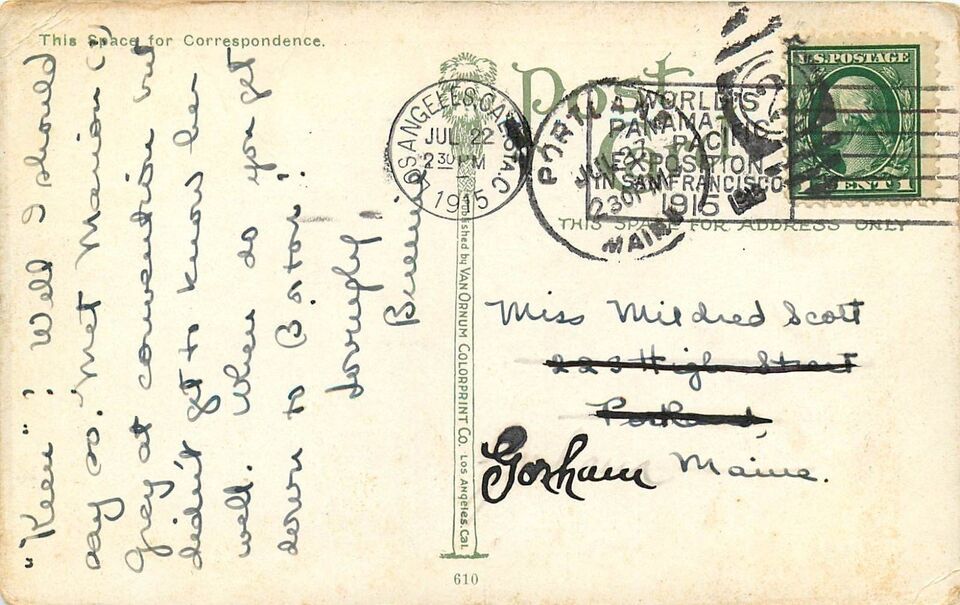 This Space for Correspondence.
"Keen"! Well I should
say so. Met Marion (?)
Gray at convention but
didn't get to know her
well. When do you get
down to Boston?
Lovingly,
Post
THIS SPACE FOR ADDRESS ONLY
LOS ANGELES, CAL.
STA. C
JUL 22
2 30 PM
1915
WORLD'S
PANAMA
PACIFIC
EXPOSITION
IN SAN FRANCISCO
1915
PORTLAND
JUL 27
230PM
MAINE
U.S. POSTAGE
1 CENT 1
Miss Mildred Scott
223 High Street
Portland,
Gorham Maine.
Published by VAN ORNUM COLORPRINT CO. LOS ANGELES, CAL.
610